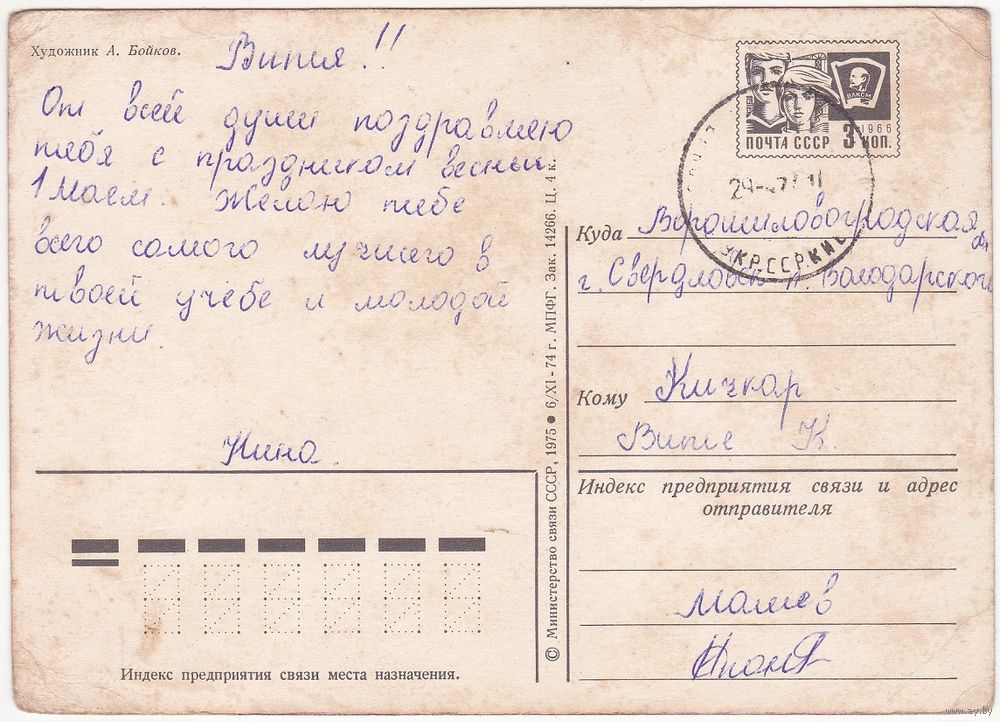 Художник А. Бойков.
Витя!!
От всей души поздравляю
тебя с праздником весны
1 Маем. Желаю тебе
всего самого лучшего в
твоей учёбе и молодой
жизни.
Нина.
Индекс предприятия связи места назначения.
© Министерство связи СССР, 1975 ● 6/XI-74 г. МПФГ. Зак. 14266. Ц. 4 к.
ВЛКСМ
1966
ПОЧТА СССР 3 КОП.
УКР.ССР КИЕ
Куда Ворошиловоградская
г. Свердловск Володарского
Кому Кичкар
Вите К.
Индекс предприятия связи и адрес
отправителя
www.ay.by